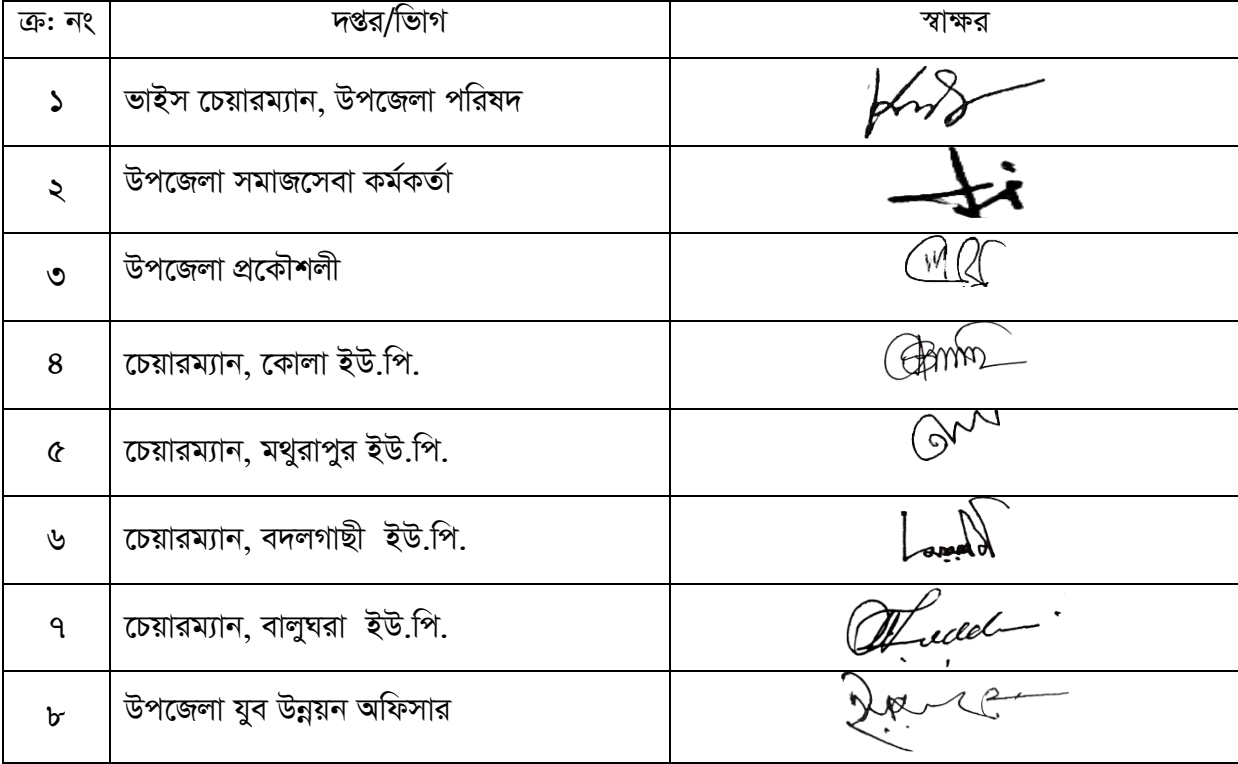 ক্র: নং দপ্তর/ভিাগ স্বাক্ষর
১ ভাইস চেয়ারম্যান, উপজেলা পরিষদ
২ উপজেলা সমাজসেবা কর্মকর্তা
৩ উপজেলা প্রকৌশলী
৪ চেয়ারম্যান, কোলা ইউ.পি.
৫ চেয়ারম্যান, মথুরাপুর ইউ.পি.
৬ চেয়ারম্যান, বদলগাছী ইউ.পি.
৭ চেয়ারম্যান, বালুঘরা ইউ.পি.
৮ উপজেলা যুব উন্নয়ন অফিসার